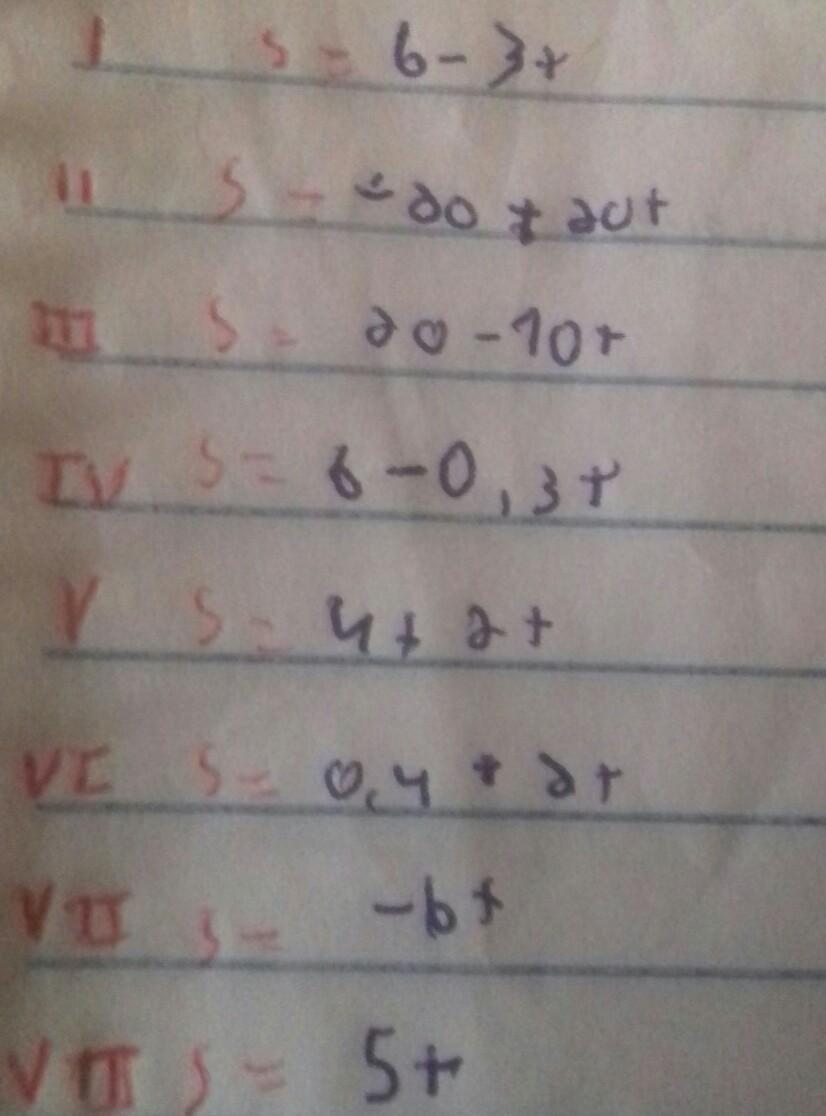 I S = 6 - 3t
II S = -20 + 20t
III S = 20 - 10t
IV S = 6 - 0,3t
V S = 4 + 2t
VI S = 0,4 + 2t
VII S = -6t
VIII S = 5t